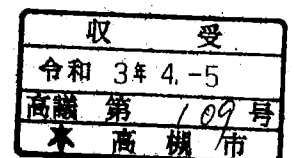 収受
令和 3年 4. -5
高議 第 109 号
高槻市